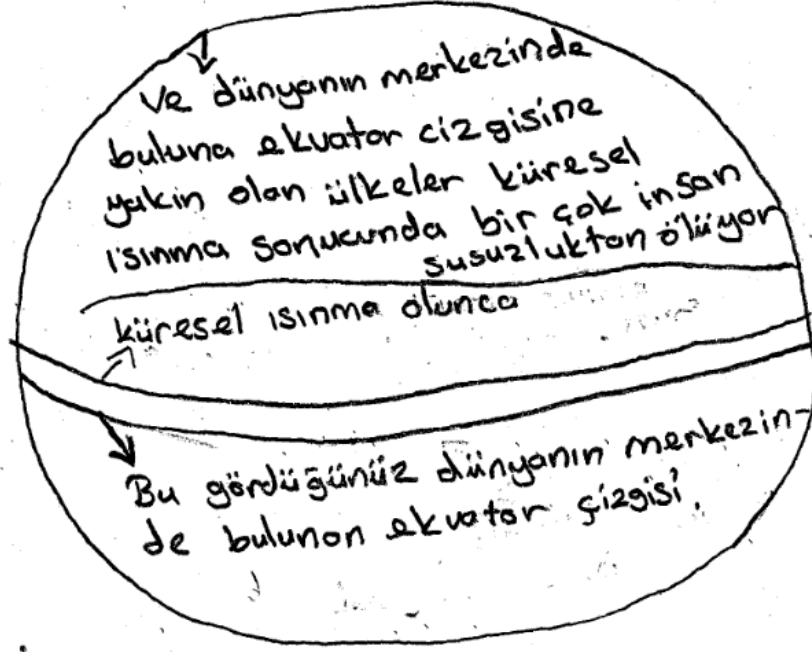 Ve dünyanın merkezinde
buluna ekvator cizgisine
yakin olan ülkeler küresel
ısınma sonucunda bir çok insan
susuzluktan ölüyor
küresel ısınma olunca
Bu gördüğünüz dünyanın merkezin-
de bulunan ekvator çizgisi.